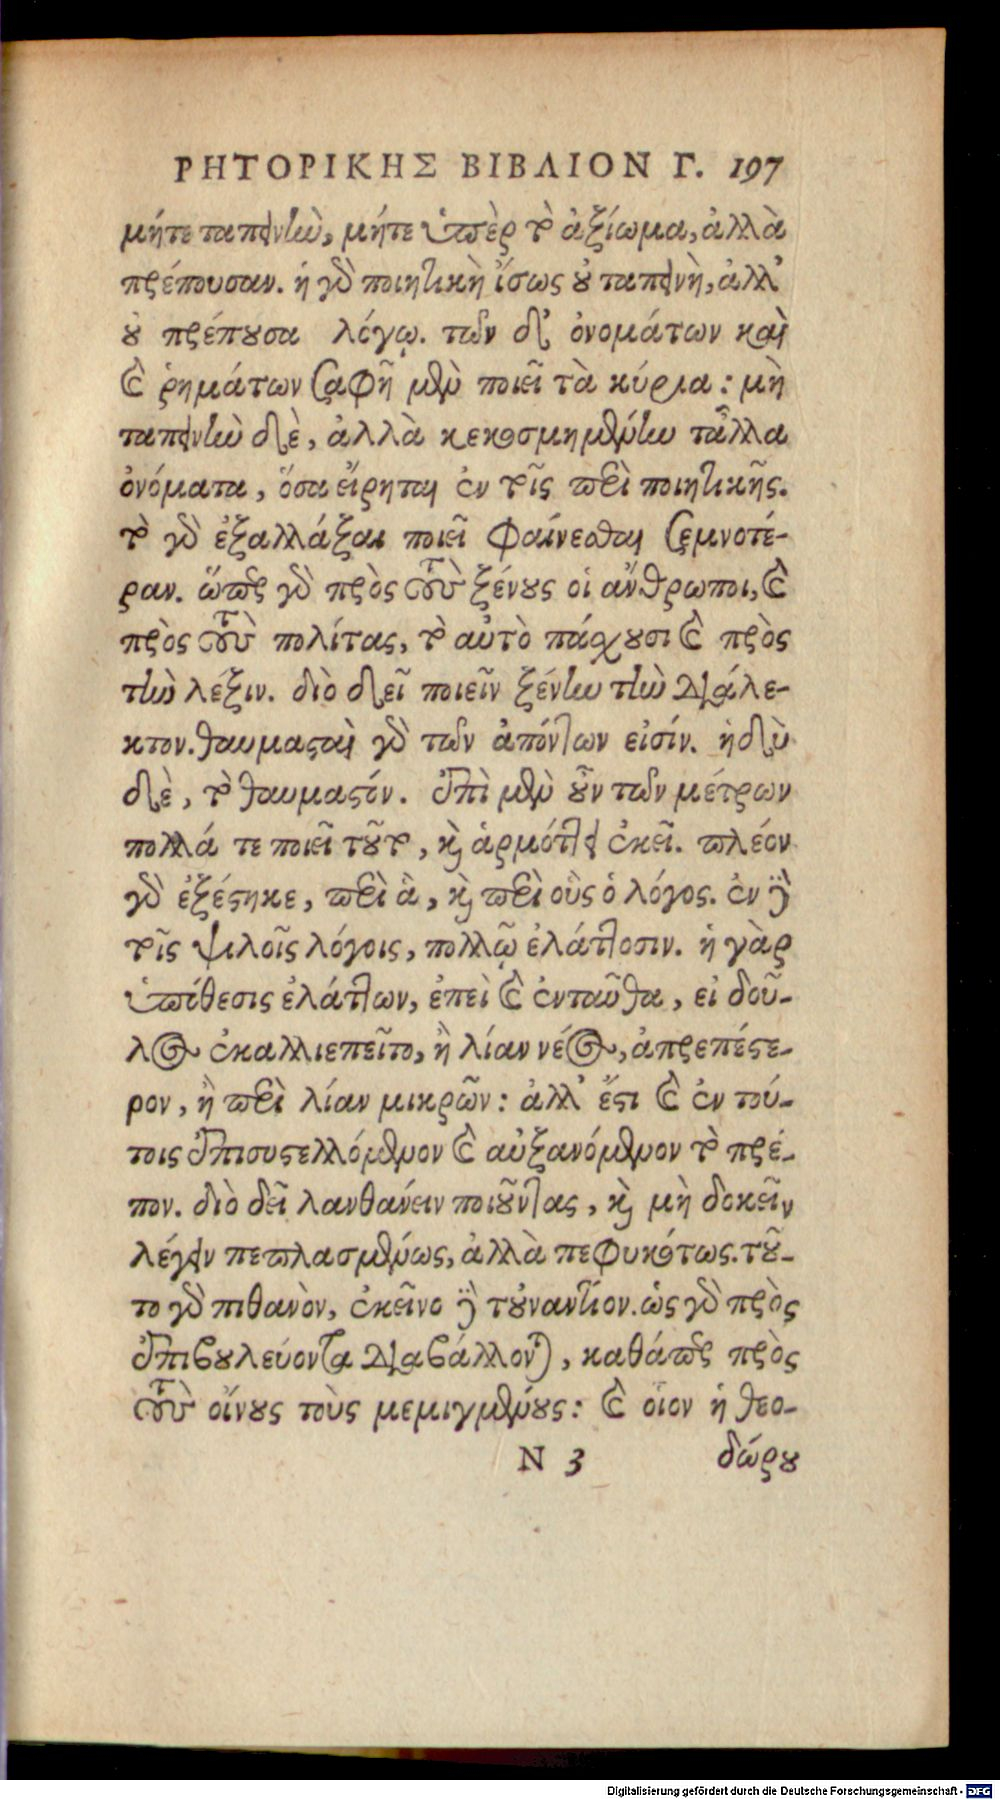 ΡΗΤΟΡΙΚΗΣ ΒΙΒΛΙΟΝ Γ. 197
μήτε ταπεινὴν, μήτε ὑπὲρ τὸ ἀξίωμα, ἀλλὰ
πρέπουσαν. ἡ γὰρ ποιητικὴ ἴσως οὐ ταπεινὴ, ἀλλ'
οὐ πρέπουσα λόγῳ. τῶν δ' ὀνομάτων καὶ
καὶ ῥημάτων σαφῆ μὲν ποιεῖ τὰ κύρια: μὴ
ταπεινὴν δὲ, ἀλλὰ κεκοσμημένην τἆλλα
ὀνόματα, ὅσα εἴρηται ἐν τοῖς περὶ ποιητικῆς.
τὸ γὰρ ἐξαλλάξαι ποιεῖ φαίνεσθαι σεμνοτέ-
ραν. ὥσπερ γὰρ πρὸς τοὺς ξένους οἱ ἄνθρωποι, καὶ
πρὸς τοὺς πολίτας, τὸ αὐτὸ πάχουσι καὶ πρὸς
τὴν λέξιν. διὸ δεῖ ποιεῖν ξένην τὴν διάλε-
κτον. θαυμασταὶ γὰρ τῶν ἀπόντων εἰσίν. ἡδὺ
δὲ, τὸ θαυμαστόν. ἐπὶ μὲν οὖν τῶν μέτρων
πολλά τε ποιεῖ τοῦτο, καὶ ἁρμόττει ἐκεῖ. πλέον
γὰρ ἐξέστηκε, περὶ ἃ, καὶ περὶ οὓς ὁ λόγος. ἐν δὲ
τοῖς ψιλοῖς λόγοις, πολλῷ ἐλάττοσιν. ἡ γὰρ
ὑπόθεσις ἐλάττων, ἐπεὶ καὶ ἐνταῦθα, εἰ δοῦ-
λος ἐκαλλιεπεῖτο, ἢ λίαν νέος, ἀπρεπέστε-
ρον, ἢ περὶ λίαν μικρῶν: ἀλλ' ἔστι καὶ ἐν τού-
τοις ἐπισυστελλόμενον καὶ αὐξανόμενον τὸ πρέ-
πον. διὸ δεῖ λανθάνειν ποιοῦντας, καὶ μὴ δοκεῖν
λέγειν πεπλασμένως, ἀλλὰ πεφυκότως. τοῦ-
το γὰρ πιθανὸν, ἐκεῖνο δὲ τοὐναντίον. ὡς γὰρ πρὸς
ἐπιβουλεύοντα διαβάλλονται, καθάπερ πρὸς
τοὺς οἴνους τοὺς μεμιγμένους: καὶ οἷον ἡ θεο-
Ν 3 δώρου
Digitalisierung gefördert durch die Deutsche Forschungsgemeinschaft - DFG